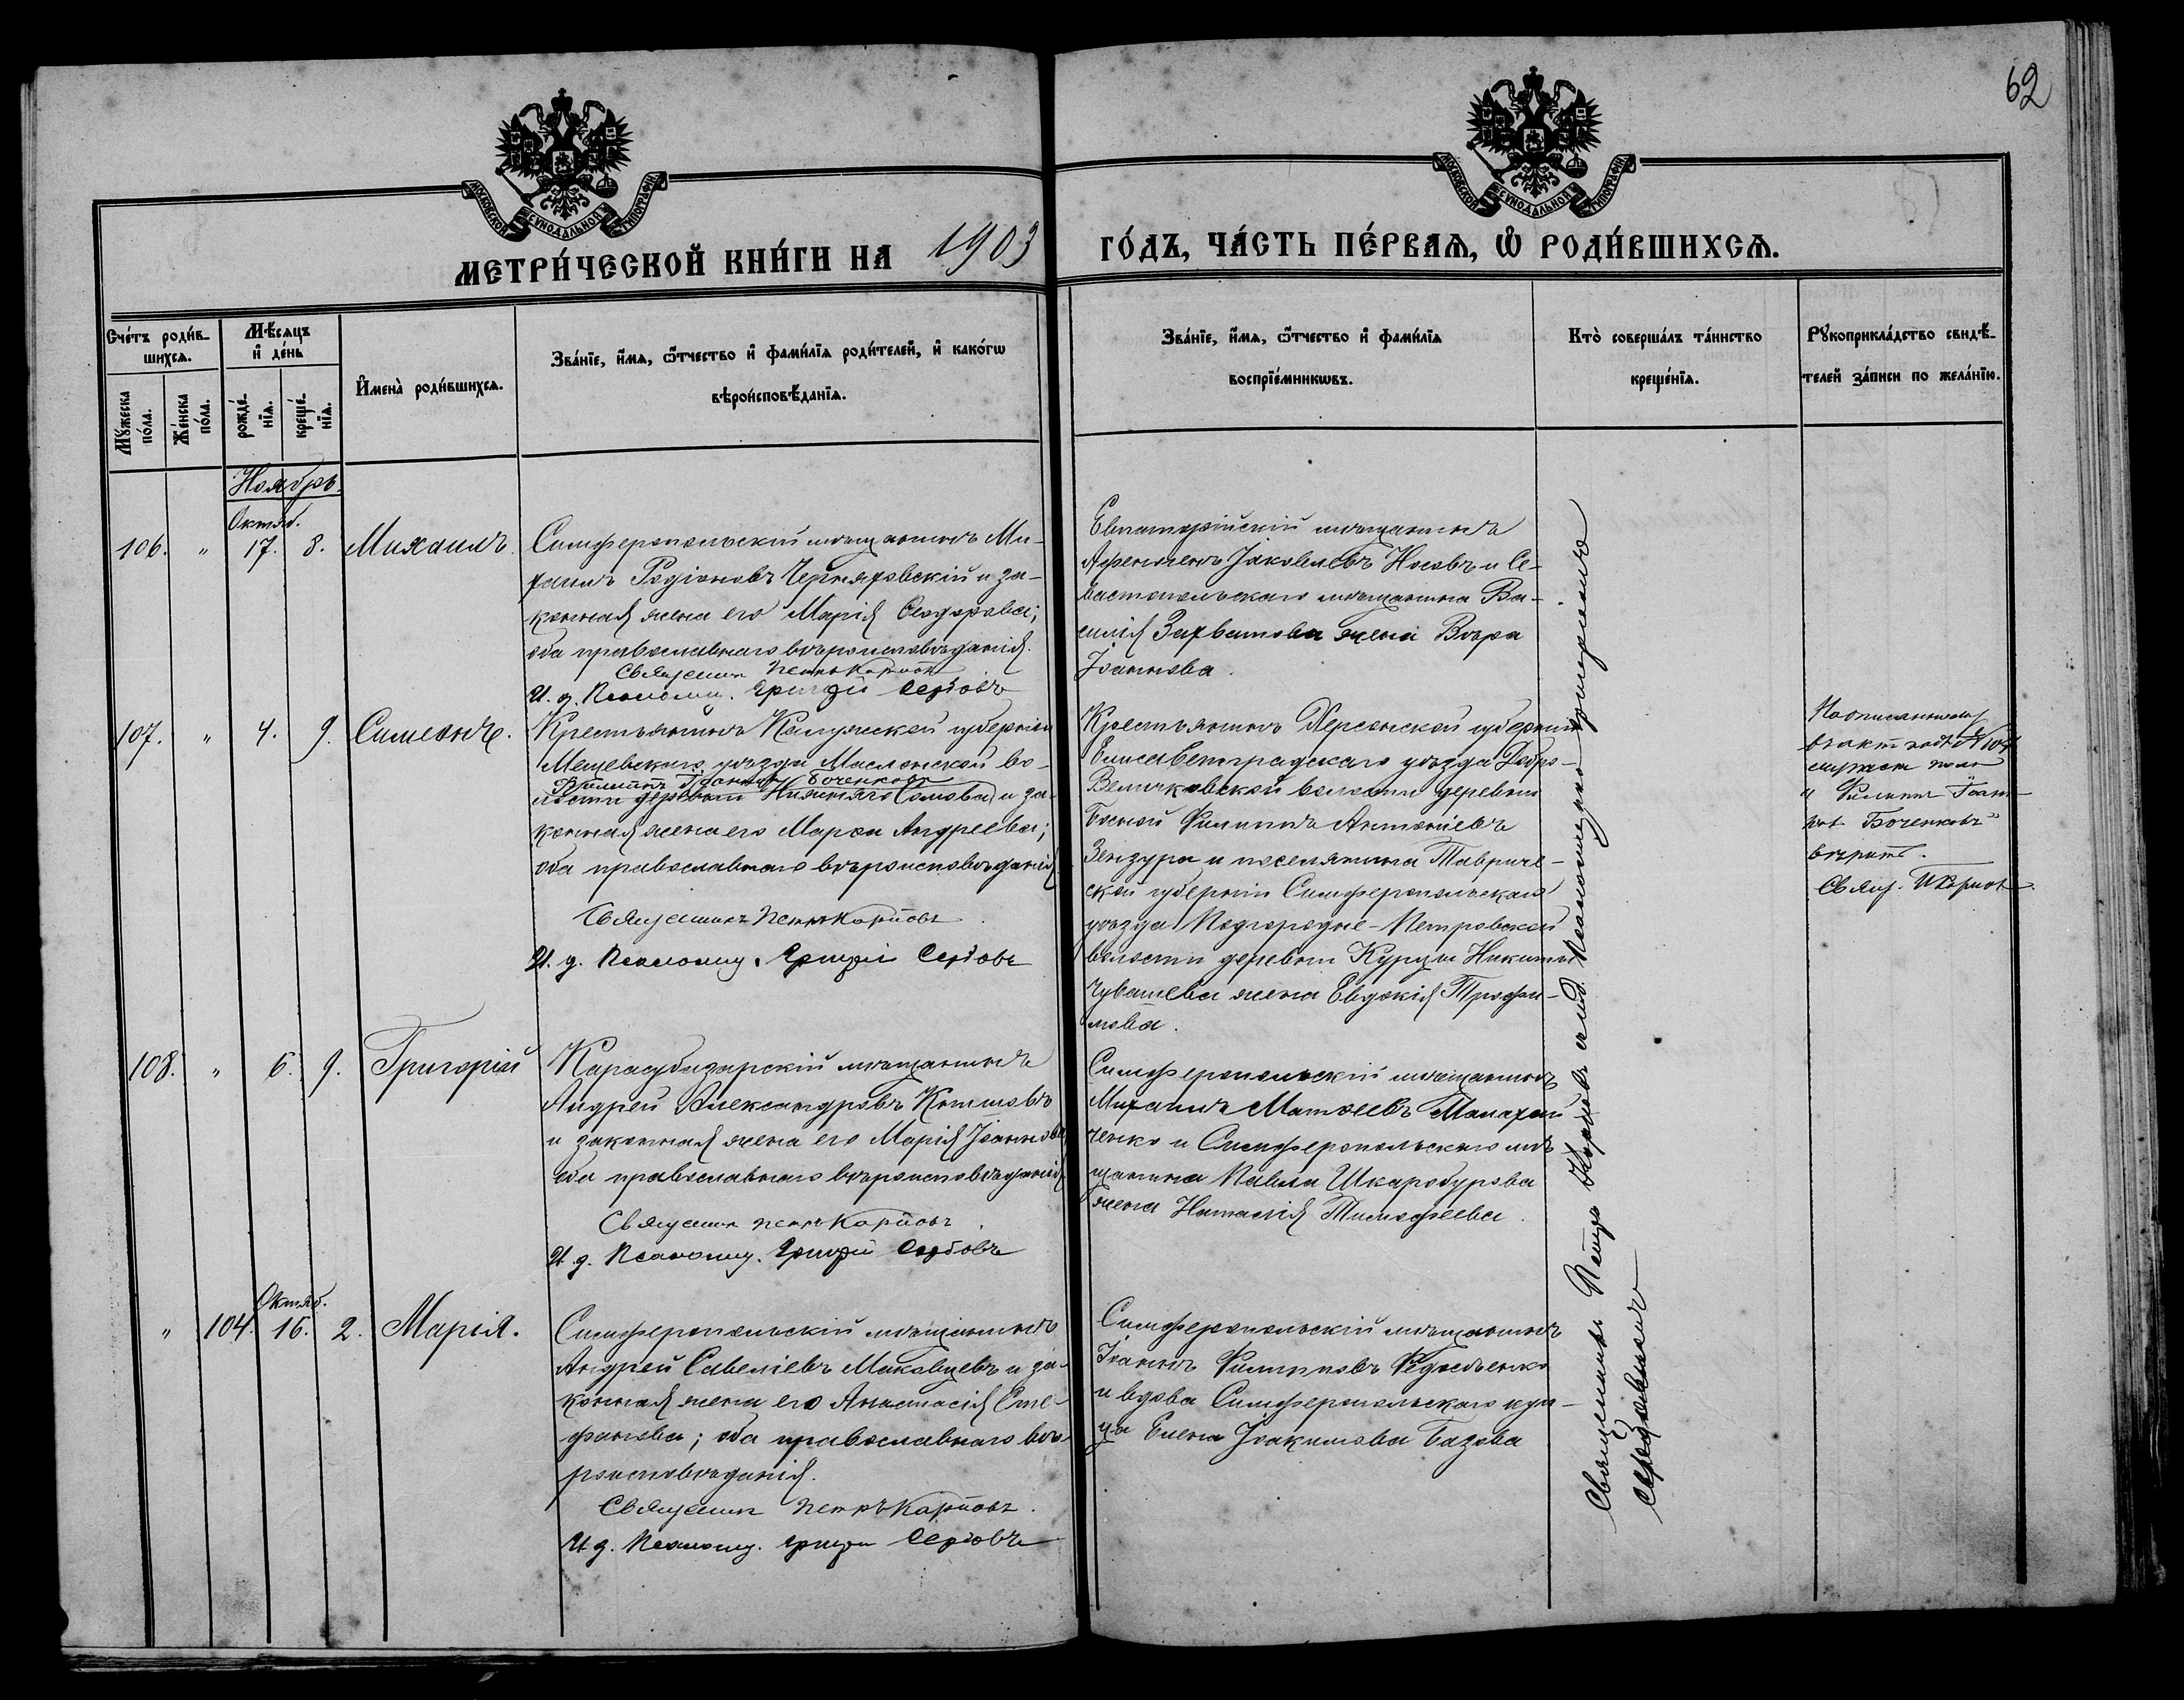 62
МОСКОВСКОЙ СѴНОДАЛЬНОЙ ТИПОГРАФІИ
МОСКОВСКОЙ СѴНОДАЛЬНОЙ ТИПОГРАФІИ
МЕТРИ́ЧЕСКОЙ КНИ́ГИ НА 1903 ГО́ДЪ, ЧА́СТЬ ПЕ́РВАЯ, Ѡ РОДИ́ВШИХСЯ.
Сче́тъ роди́в-
шихся.
Му́жеска по́ла.
Же́нска по́ла.
Мѣ́сяцъ
и де́нь
рожде́-
нія.
креще́-
нія.
Имена̀ роди́вшихся.
Зва́ніе, и́мя, ѻ́тчество и фами́лія роди́телей, и како́гѡ
вѣроисповѣ́данія.
Зва́ніе, и́мя, ѻ́тчество и фами́лія
воспріе́мникѡвъ.
Кто̀ соверша́лъ та́инство
креще́нія.
Рꙋкоприкла́дство свидѣ́-
телей за́писи по жела́нію.
Ноябрь.
Октяб.
106. " 17. 8. Михаилъ.
Симферопольскій мѣщанинъ Ми-
хаилъ Родіоновъ Черняховскій и за-
конная жена его Марія Ѳеодорова;
оба православнаго вѣроисповѣданія.
Священник Петръ Карповъ
И. д. Псаломщ. Григорій Сербовъ
Евпаторійскій мѣщанинъ
Іаковлевъ Носовъ и Се-
вастопольскаго мѣщанина Ва-
силія Захватова жена Вѣра
Іоаннова.
107. " 4. 9. Симеонъ.
Крестьянинъ Калужской губерніи
Мещевскаго уѣзда Маслонской во-
Филиппъ Іоанновъ Боченковъ
лости деревни и за-
конная жена его Марѳа Андреева;
оба православнаго вѣроисповѣданія
Священникъ Петръ Карповъ
И. д. Псаломщ. Григорій Сербовъ
Крестьянинъ Херсонской губерніи
Елисаветградскаго уѣзда Добро-
Величковской волости деревни
Филиппъ Антоніевъ
Зензура и поселянина Тавриче-
ской губерніи Симферопольскаго
уѣзда Подгородне-Петровской
волости деревни Курцы Никиты
Чувашева жена Евдокія Трофи-
мова.
По описанному
въ акт подъ № 107
мужск пола
" Филиппъ Іоан-
нов Боченковъ"
вѣрить.
Свящ. П Карпов
108. " 6. 9. Григорій
Карасубазарскій мѣщанинъ
Андрей Александровъ
и законная жена его Марія Іоаннова
оба православнаго вѣроисповѣданія
Священник Петръ Карповъ.
И. д. Псаломщ. Григорій Сербовъ
Симферопольскій мѣщанинъ
Михаилъ Матѳеевъ Малахай
ченко и Симферопольскаго мѣ
щанина Павла Шкаробурова
жена Наталія Тимоѳеева.
Октяб.
" 104. 16. 2. Марія.
Симферопольскій мѣщанинъ
Андрей Савеліевъ Маковцевъ и за-
конная жена его Анастасія Сте-
фанова; оба православнаго вѣ-
роисповѣданія.
Священник Петръ Карповъ.
И д. Псаломщ. Григорій Сербовъ
Симферопольскій мѣщанинъ
Іоаннъ Филипповъ
и вдова Симферопольскаго куп-
ца Елена Іоакимова Базова
Священникъ Петръ Карповъ и. д. Псаломщика Григоріемъ
Сербовымъ